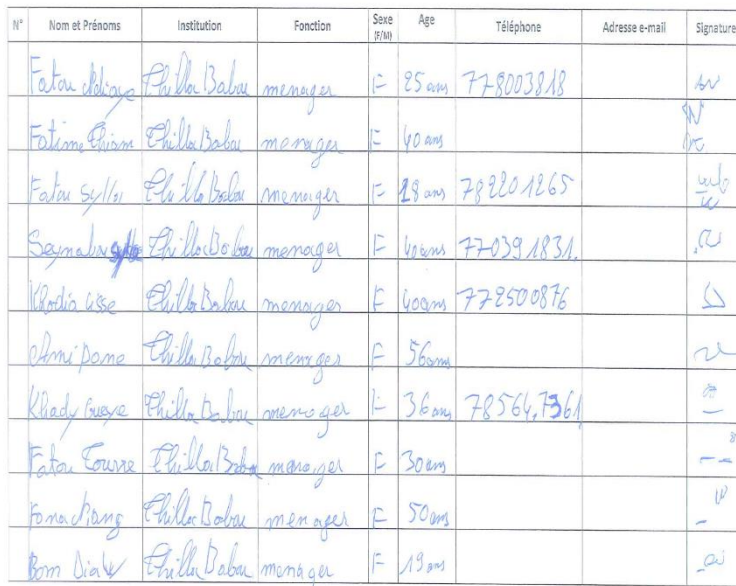 N° Nom et Prénoms Institution Fonction Sexe (F/M) Age Téléphone Adresse e-mail Signature
Fatou Ndiaye Thilla Babou menager F 25 ans 778003818
Fatime Thiam Thilla Babou menager F 40 ans
Fatou Sylla Thilla Babou menager F 28 ans 782201265
Seynabou Sylla Thilla Babou menager F 40 ans 770391831.
Khodia Cisse Thilla Babou menager F 40 ans 772500876
Ami Thilla Babou menager F 56 ans
Khady Gueye Thilla Babou menager F 36 ans 785647361
Fatou Toure Thilla Babou menager F 30 ans
Thilla Babou menager F 50 ans
Thilla Babou menager F 19 ans